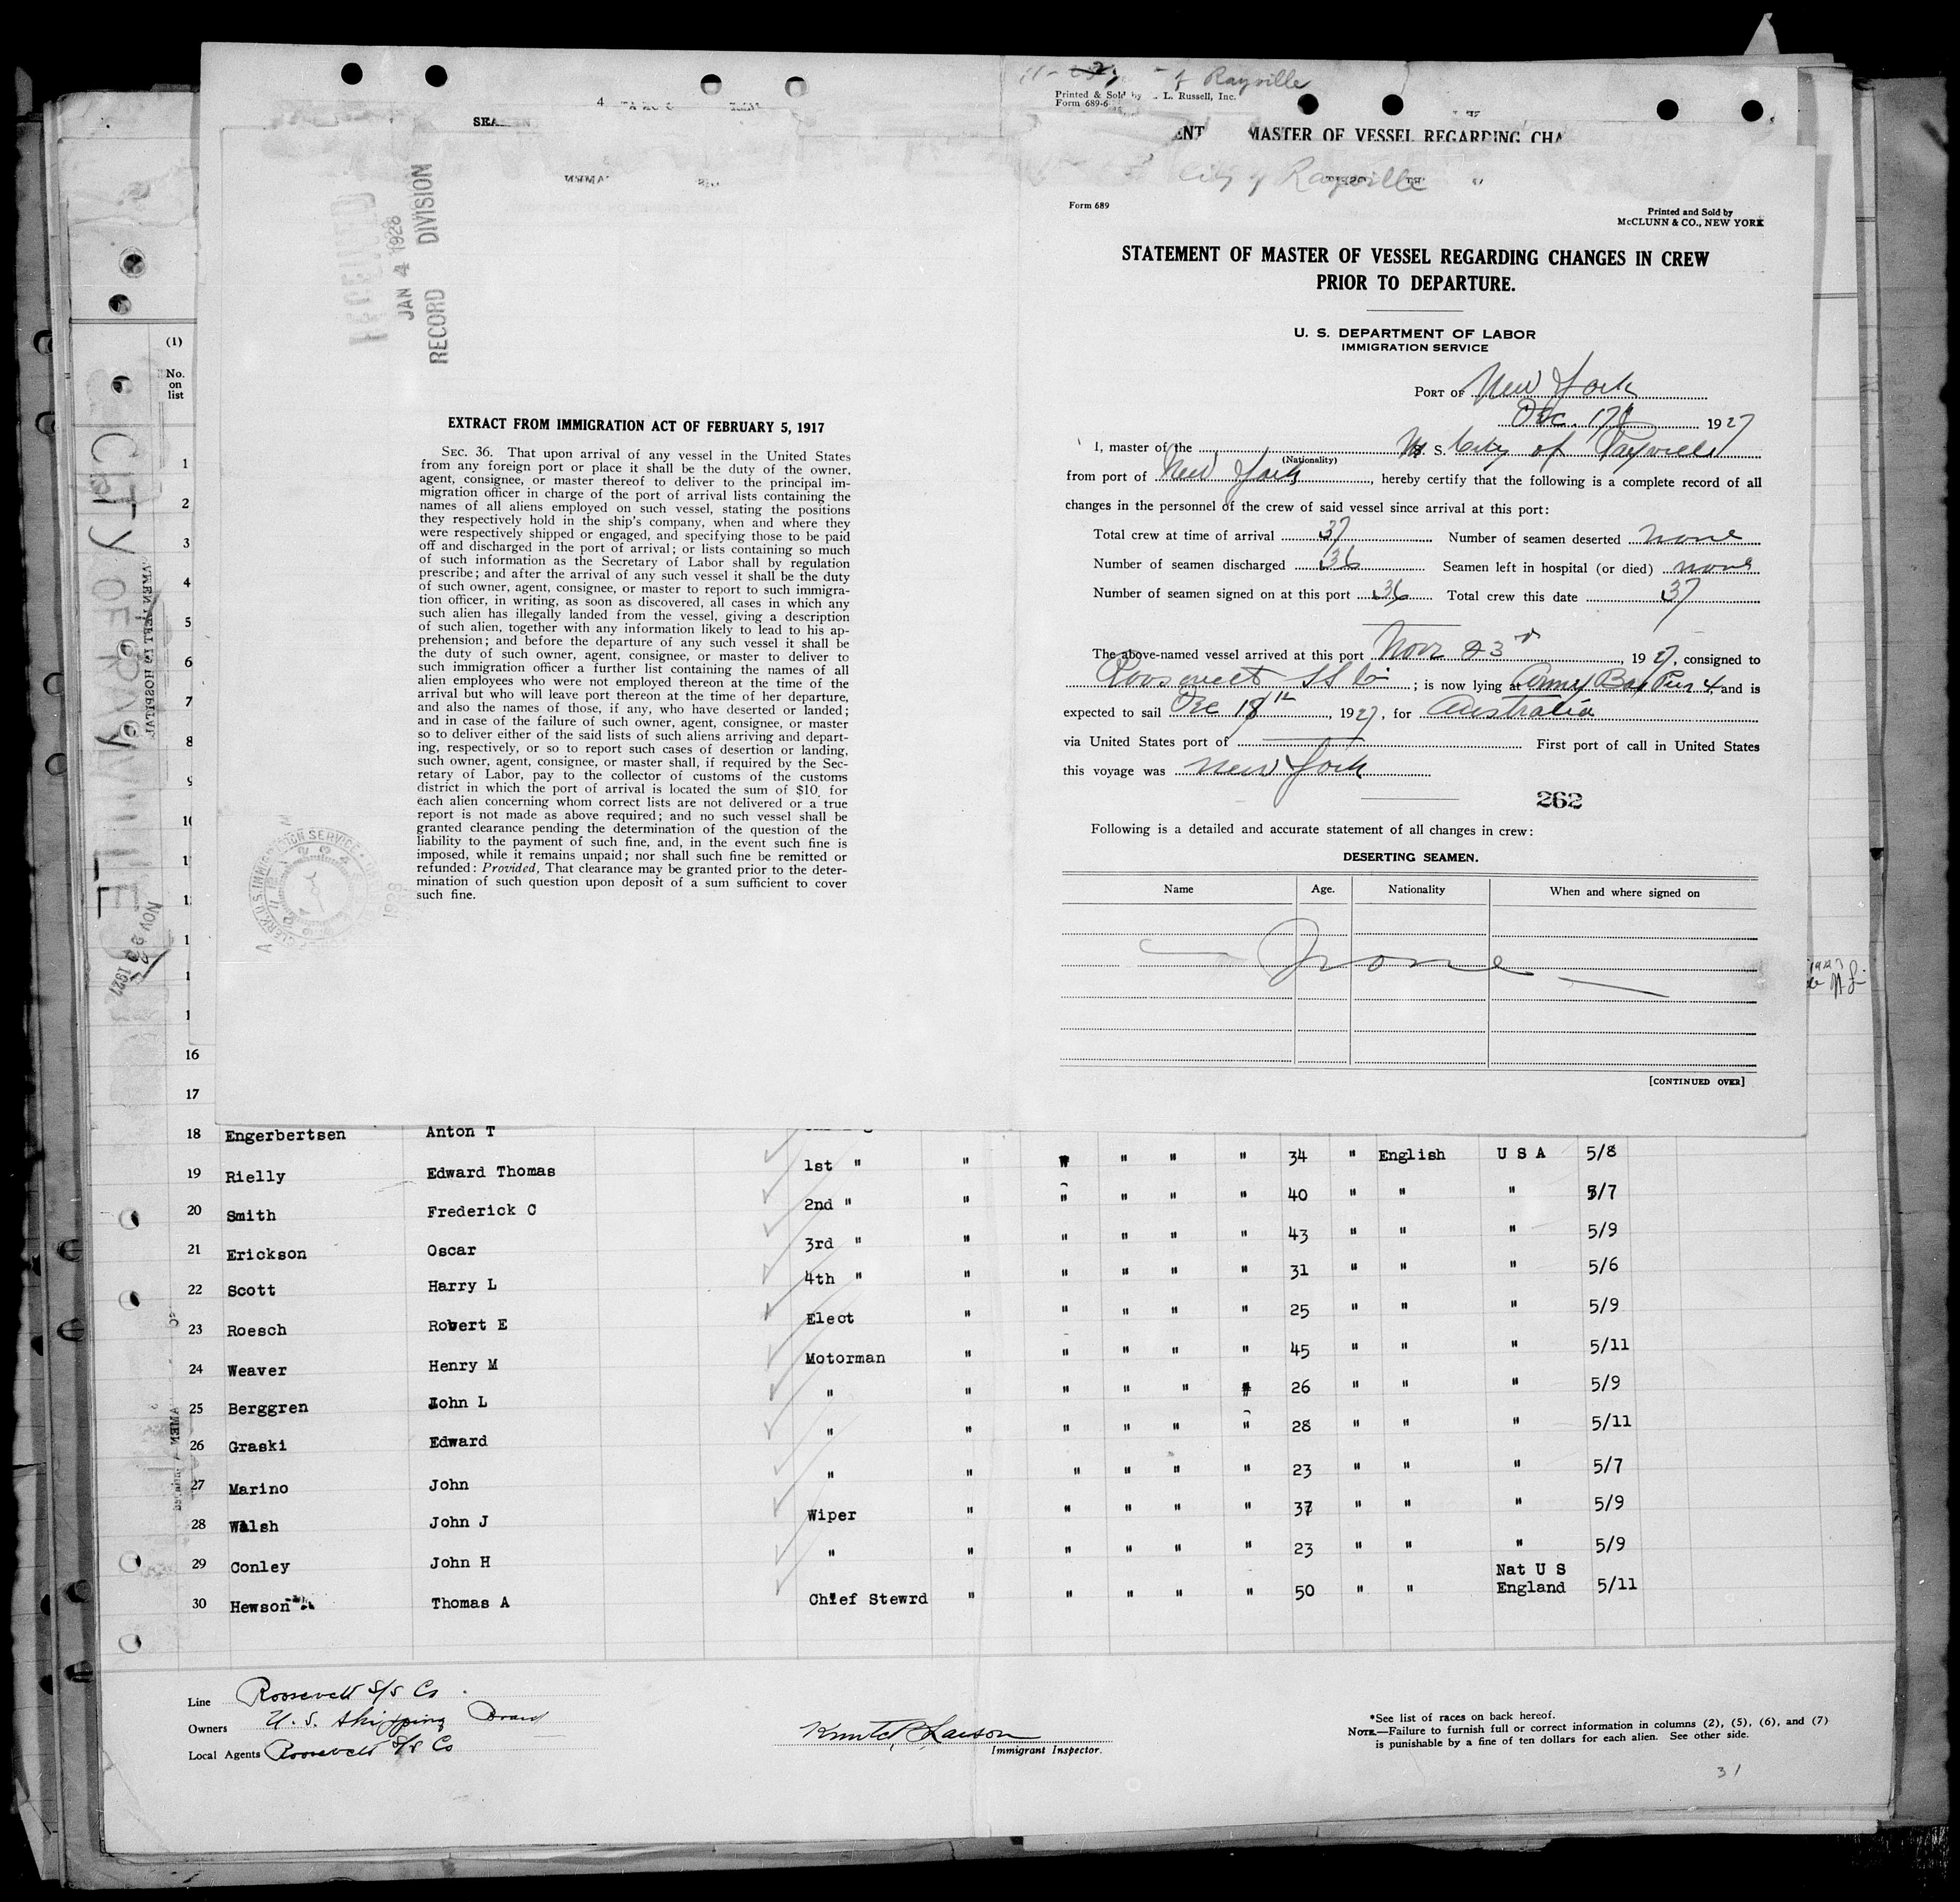 of Rayville
Printed & Sold by L. Russell, Inc.
Form 689-6
MASTER OF VESSEL REGARDING CHA
City of Rayville
Form 689
Printed and Sold by
McCLUNN & CO., NEW YORK
STATEMENT OF MASTER OF VESSEL REGARDING CHANGES IN CREW
PRIOR TO DEPARTURE.
U. S. DEPARTMENT OF LABOR
IMMIGRATION SERVICE
PORT OF New York
Dec. 17th 1927
I, master of the M. S. City of Rayville
(Nationality)
from port of New York, hereby certify that the following is a complete record of all
changes in the personnel of the crew of said vessel since arrival at this port:
Total crew at time of arrival 37 Number of seamen deserted none
Number of seamen discharged 36 Seamen left in hospital (or died) none
Number of seamen signed on at this port 36 Total crew this date 37
The above-named vessel arrived at this port Nov 23rd, 1927, consigned to
Roosevelt SS Co; is now lying at Army Base Pier 4 and is
expected to sail Dec 18th, 1927, for Australia
via United States port of First port of call in United States
this voyage was New York
262
Following is a detailed and accurate statement of all changes in crew:
DESERTING SEAMEN.
Name Age. Nationality When and where signed on
None
[CONTINUED OVER]
RECEIVED
JAN 4 1928
RECORD DIVISION
EXTRACT FROM IMMIGRATION ACT OF FEBRUARY 5, 1917
SEC. 36. That upon arrival of any vessel in the United States
from any foreign port or place it shall be the duty of the owner,
agent, consignee, or master thereof to deliver to the principal im-
migration officer in charge of the port of arrival lists containing the
names of all aliens employed on such vessel, stating the positions
they respectively hold in the ship's company, when and where they
were respectively shipped or engaged, and specifying those to be paid
off and discharged in the port of arrival; or lists containing so much
of such information as the Secretary of Labor shall by regulation
prescribe; and after the arrival of any such vessel it shall be the duty
of such owner, agent, consignee, or master to report to such immigra-
tion officer, in writing, as soon as discovered, all cases in which any
such alien has illegally landed from the vessel, giving a description
of such alien, together with any information likely to lead to his ap-
prehension; and before the departure of any such vessel it shall be
the duty of such owner, agent, consignee, or master to deliver to
such immigration officer a further list containing the names of all
alien employees who were not employed thereon at the time of the
arrival but who will leave port thereon at the time of her departure,
and also the names of those, if any, who have deserted or landed;
and in case of the failure of such owner, agent, consignee, or master
so to deliver either of the said lists of such aliens arriving and depart-
ing, respectively, or so to report such cases of desertion or landing,
such owner, agent, consignee, or master shall, if required by the Sec-
retary of Labor, pay to the collector of customs of the customs
district in which the port of arrival is located the sum of $10 for
each alien concerning whom correct lists are not delivered or a true
report is not made as above required; and no such vessel shall be
granted clearance pending the determination of the question of the
liability to the payment of such fine, and, in the event such fine is
imposed, while it remains unpaid; nor shall such fine be remitted or
refunded: Provided, That clearance may be granted prior to the deter-
mination of such question upon deposit of a sum sufficient to cover
such fine.
CITY OF RAYVILLE
NOV 23 1927
(1)
No.
on
list
1
2
3
4
5
6
7
8
9
10
16
17
18 Engerbertsen Anton T
19 Rielly Edward Thomas 1st " " " " " " 34 " English U S A 5/8
20 Smith Frederick C 2nd " " " " " " 40 " " " 5/7
21 Erickson Oscar 3rd " " " " " " 43 " " " 5/9
22 Scott Harry L 4th " " " " " " 31 " " " 5/6
23 Roesch Robert E Elect " " " " " 25 " " " 5/9
24 Weaver Henry M Motorman " " " " " 45 " " " 5/11
25 Berggren John L " " " " " " 26 " " " 5/9
26 Graski Edward " " " " " " 28 " " " 5/11
27 Marino John " " " " " " 23 " " " 5/7
28 Walsh John J Wiper " " " " " 37 " " " 5/9
29 Conley John H " " " " " " 23 " " " 5/9
30 Hewson Thomas A Chief Stewrd " " " " " 50 " " Nat U S England 5/11
Line Roosevelt S/S Co.
Owners U. S. Shipping Board
Local Agents Roosevelt S/S Co
Immigrant Inspector.
*See list of races on back hereof.
NOTE.—Failure to furnish full or correct information in columns (2), (5), (6), and (7)
is punishable by a fine of ten dollars for each alien. See other side.
31